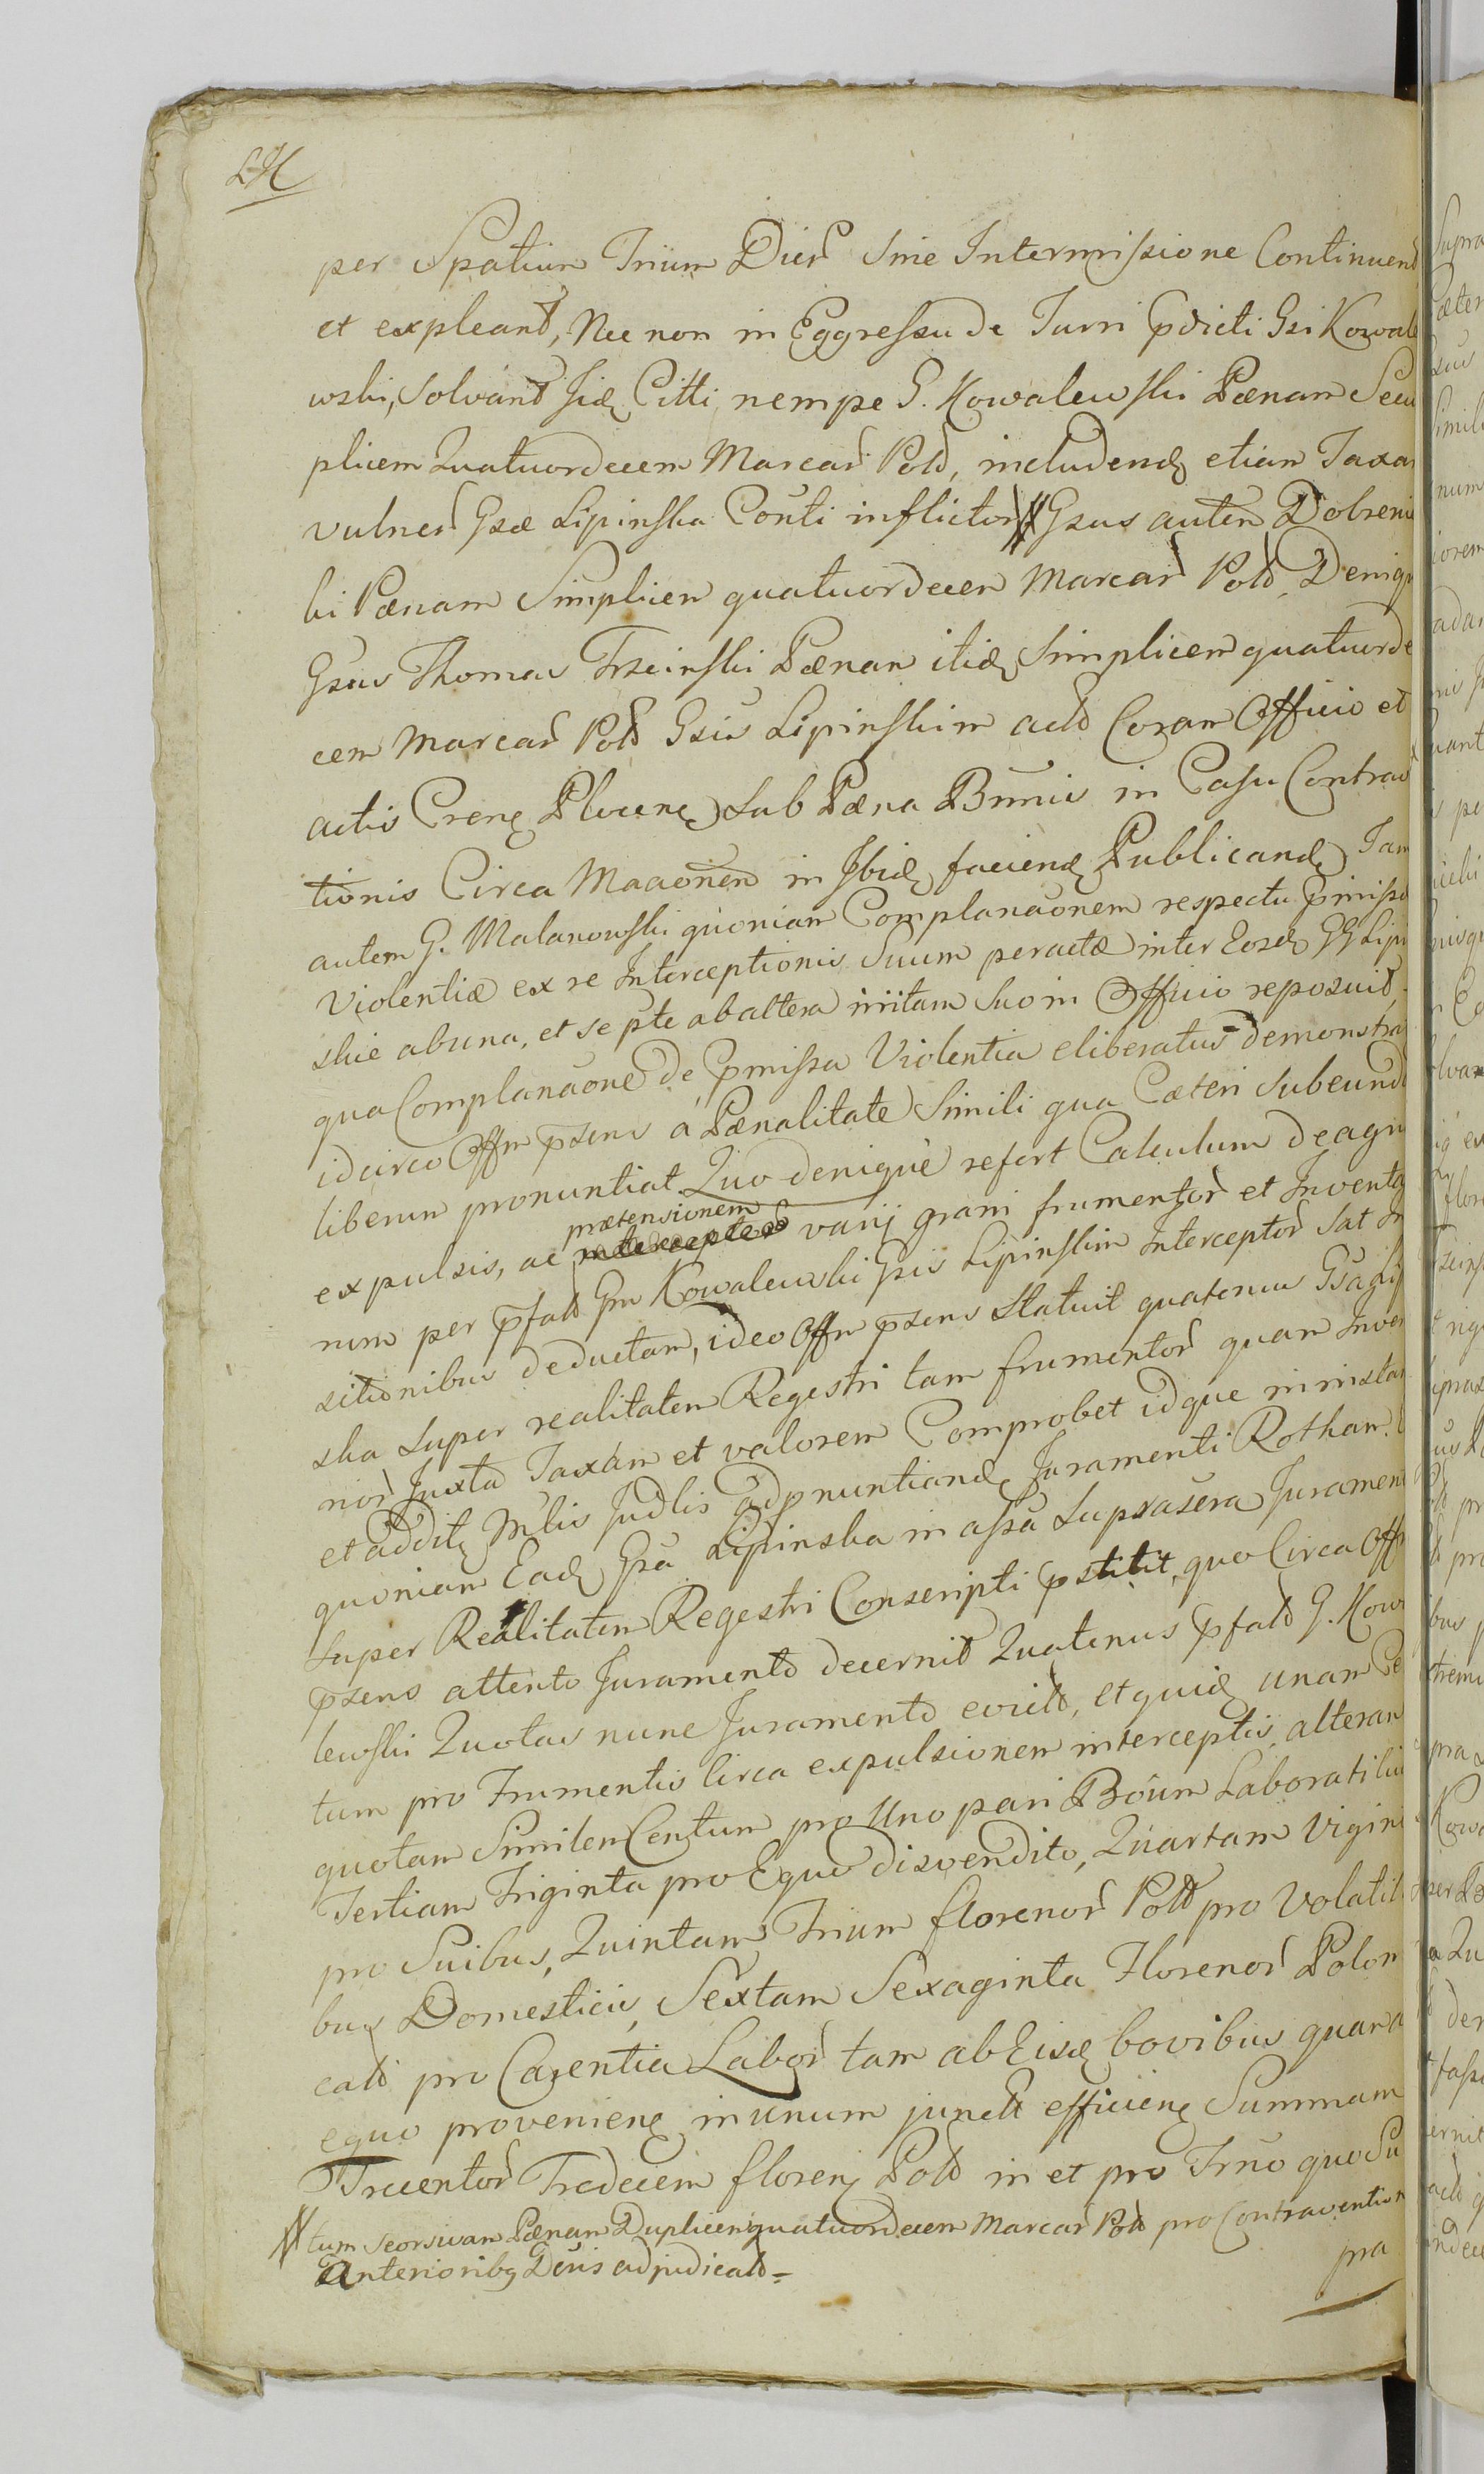 LH
per Spatium Trium Dier Sine Intermissione Continuent
et expleant, Nec non in Eggressu de Turri pdicti Gsi Kowale
wski, Solvant Jid Citti nempe G. Kowalewski Pænam
plicem Quatuordecem Marcar Pol, includend etiam Taxam
vulner Gsæ Lipinska Conti inflictor # Gsus autem Dobrenie
ki Pænam Simplicem quatuordecem Marcar Pol, Deniq
Gsus Thomas Trzcinski Pænam itid Simplicem quatuorde
cem Marcar Pol Gsis Lipinskim act Coram Officio et
actis Cren Plocen Sub Pæna Bnnis in Casu Contrav
tionis Circa Maaonem in Ibid faciend Publicand Iam
autem G. Malanowski quoniam Complanaonem respectu pmissæ
Violentiæ ex re Interceptionis Suum peractæ inter Eosd GG Lipin
skie ab una, et se pte ab altera initam Suo in Officio reposuit,
qua Complanaone de pmissa Violentia eliberatus demonstrat
idcirco Offm psens a Pænalitate Simili qua Cæteri Subeund
liberum pronuntiat Quo denique refert Calculum de agris
prætensionem
expulsis, ac varij grani frumentor et Inventa
rium per pfat Gm Kowalewski Gsis Lipinskim Interceptor Sat In
sitionibus deductam, ideo Offm psens Statuit quatenus Gsa Lip
ska Super realitatem Regestri tam frumentor quam Inven
rior Juxta Taxam et valorem Comprobet idque in instan
et addit Mlis Judlis adpnuntiand Juramenti Rotham.
quoniam Ead Gsa Lipinska in assa Suprasera Jurament
Super Realitatem Regestri Conscripti pstitit, quo Circa Offm
psens attento Juramento decernit Quatenus pfat G. Kowa
lewski Quotas nunc Juramento evict, et quid unam Ce
tum pro Frumentis Circa expulsionem interceptis, alteram
quotam Similem Centum pro Uno pari Boum Laboratiliu
Tertiam Triginta pro Equo disvendito, Quartam Vigin
pro Suibus, Quintam Trium florenor Pol pro Volatili
bus Domesticis, Sextam Sexaginta Florenor Polon
cal pro Carentia Labor tam ab Eisd bovibus quam a
equo provenien in unum junct efficien Summam
Trecentor Tredecem floren Pol in et pro Trno quo Su
# tum seorsivam Pænam Duplicem quatuordecem Marcar Pol pro Contravention
Anterioribq Dcris adjudicat =
pra